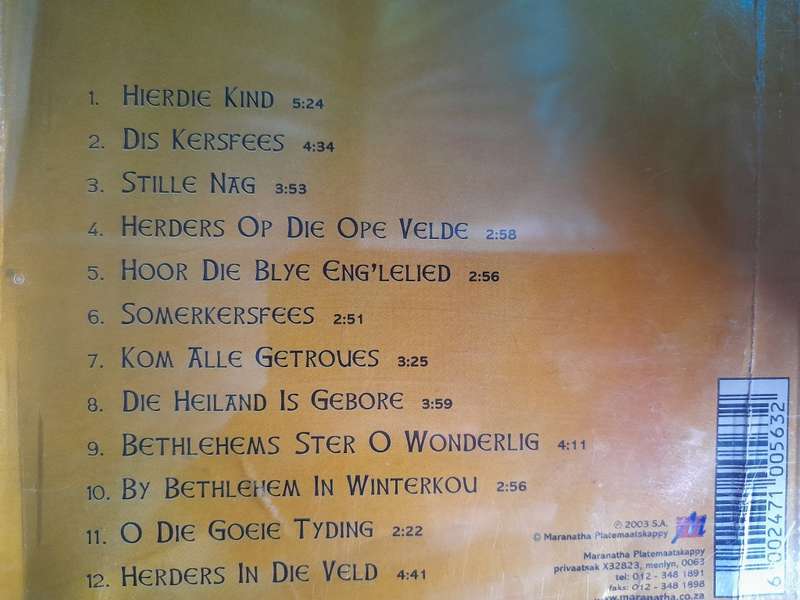 1. Hierdie Kind 5:24
2. Dis Kersfees 4:34
3. Stille Nag 3:53
4. Herders Op Die Ope Velde 2:58
5. Hoor Die Blye Eng'lelied 2:56
6. Somerkersfees 2:51
7. Kom Alle Getroues 3:25
8. Die Heiland Is Gebore 3:59
9. Bethlehems Ster O Wonderlig 4:11
10. By Bethlehem In Winterkou 2:56
11. O Die Goeie Tyding 2:22
12. Herders In Die Veld 4:41
℗ 2003 S.A.
© Maranatha Platemaatskappy
Maranatha Platemaatskappy
privaatsak X32823, menlyn, 0063
tel: 012 - 348 1891
faks: 012 - 348 1898
www.maranatha.co.za
6 002471 005632